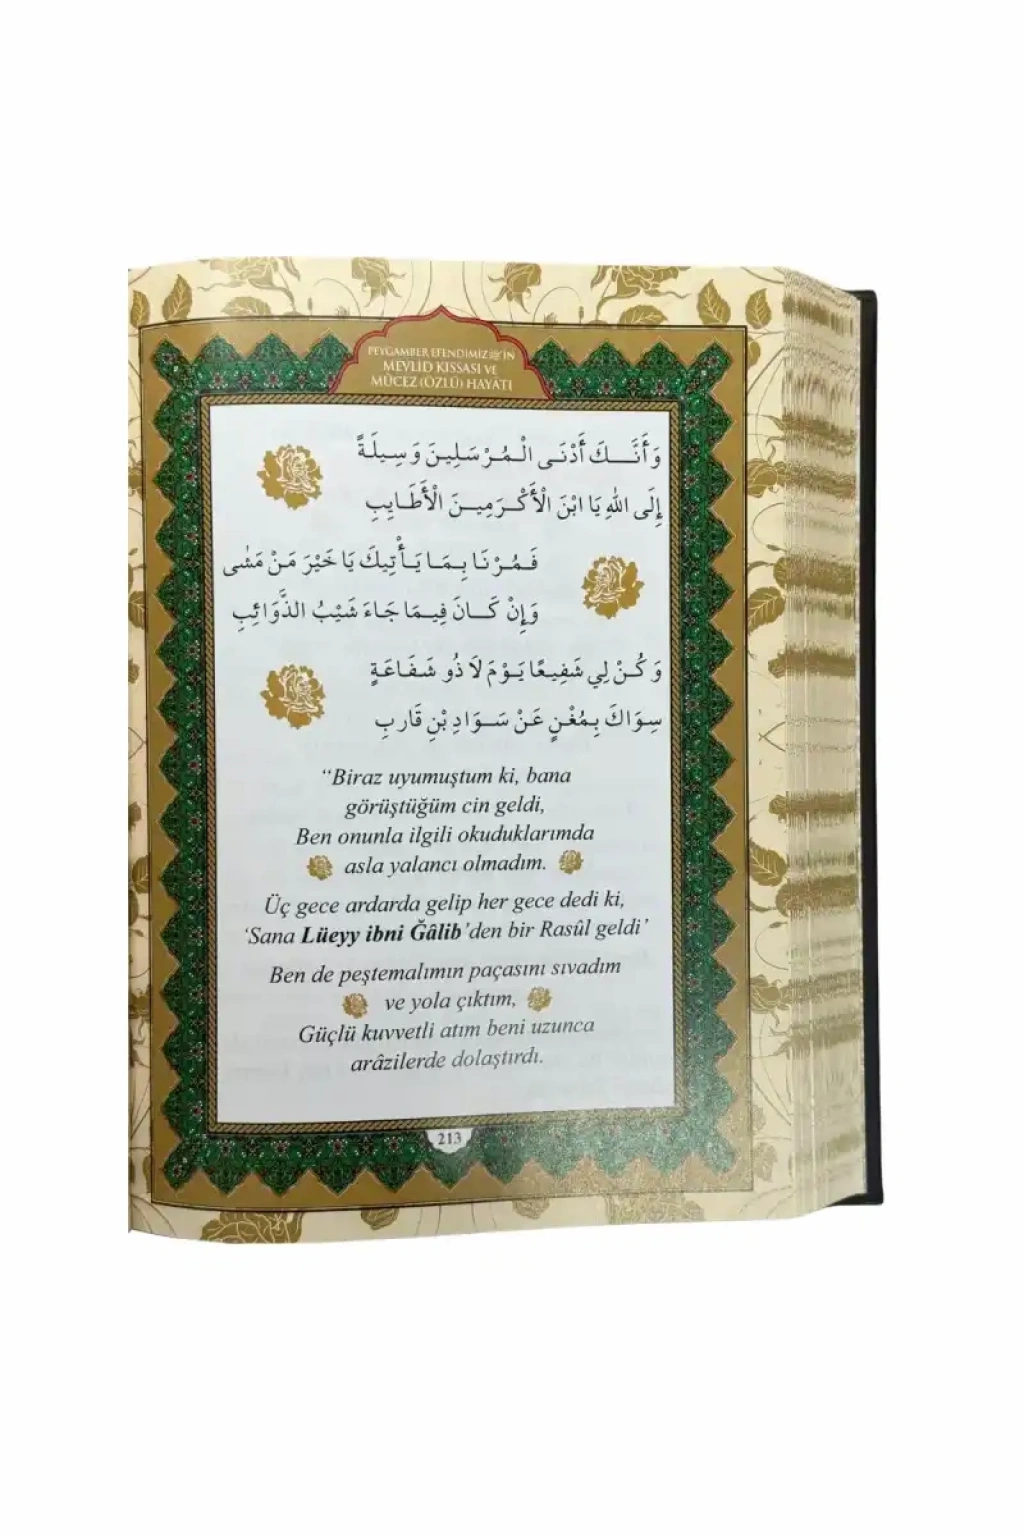 PEYGAMBER EFENDİMİZ ﷺ'İN
MEVLİD KISSASI VE
MÛCEZ (ÖZLÜ) HAYATI
وَأَنَّـكَ أَدْنَى الْمُرْسَلِينَ وَسِيلَةً
إِلَى اللهِ يَا ابْنَ الْأَكْرَمِينَ الْأَطَايِبِ
فَمُرْنَا بِمَا يَأْتِيكَ يَا خَيْرَ مَنْ مَشٰى
وَإِنْ كَانَ فِيمَا جَاءَ شَيْبُ الذَّوَائِبِ
وَكُنْ لِي شَفِيعًا يَوْمَ لَا ذُو شَفَاعَةٍ
سِوَاكَ بِمُغْنٍ عَنْ سَوَادِ بْنِ قَارِبِ
“Biraz uyumuştum ki, bana
görüştüğüm cin geldi,
Ben onunla ilgili okuduklarımda
asla yalancı olmadım.
Üç gece ardarda gelip her gece dedi ki,
‘Sana Lüeyy ibni Ğâlib’den bir Rasûl geldi’
Ben de peştemalımın paçasını sıvadım
ve yola çıktım,
Güçlü kuvvetli atım beni uzunca
arâzilerde dolaştırdı.
213